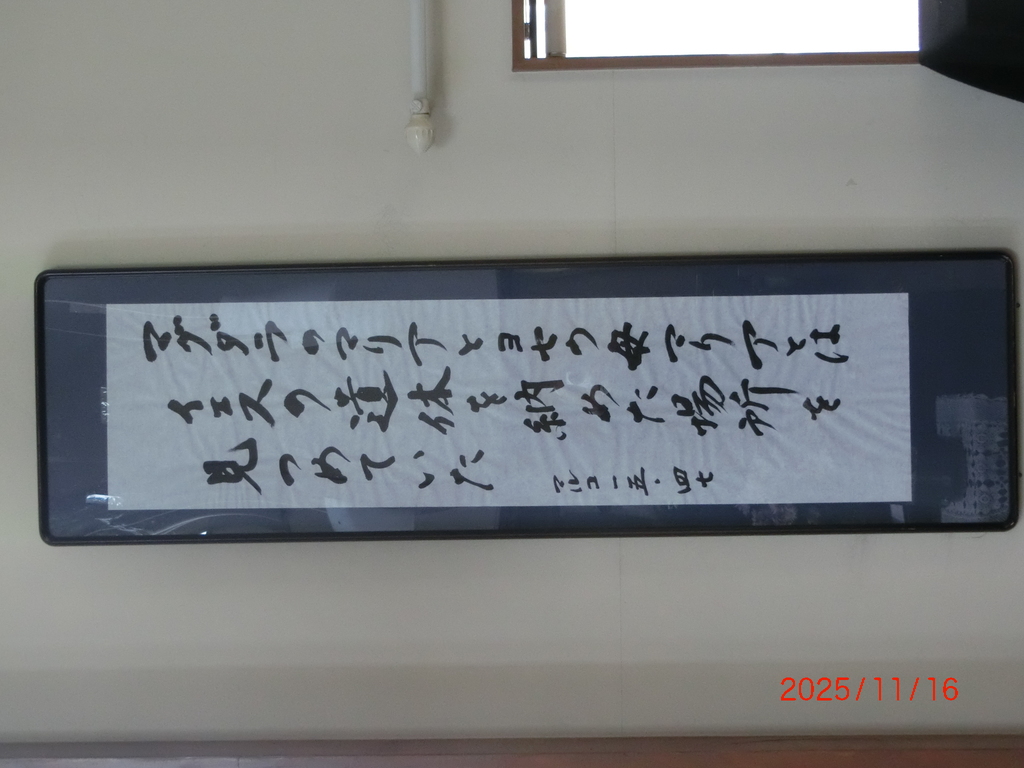 マグダラのマリアとヨセの母マリアとは
イエスの遺体を納めた場所を
見つめていた
マルコ一五・四七
2025/11/16